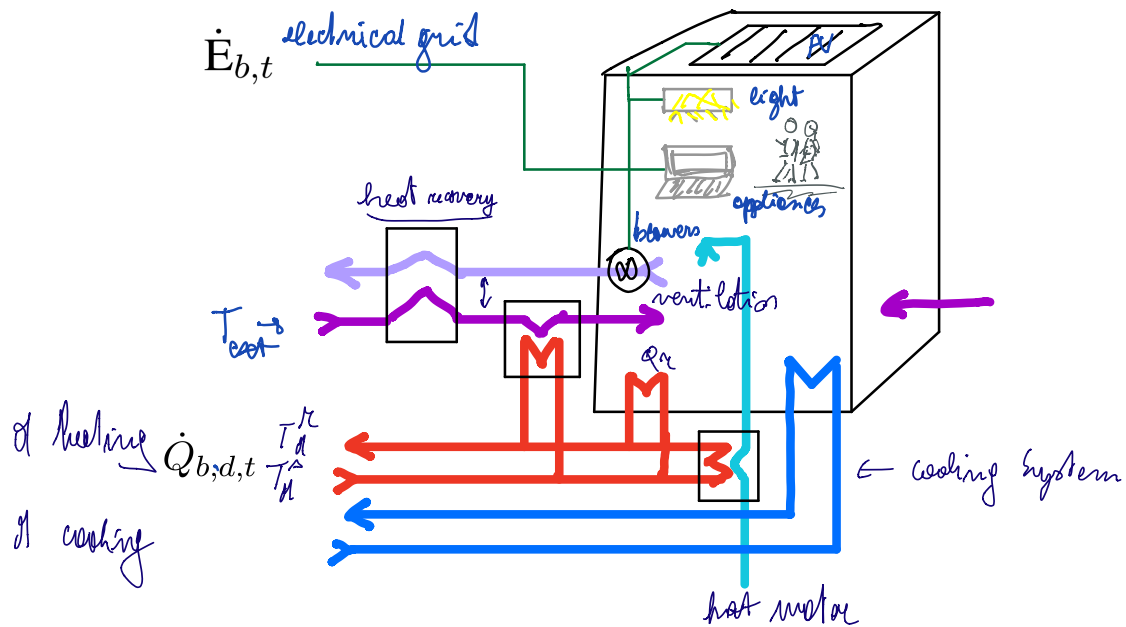 Ė_{b,t}
electrical grid
PV
light
appliances
heat recovery
blowers
ventilation
T_{ext}
Q_r
d heating
Q̇_{b,d,t}
T_d^r
T_d^s
← cooling system
d cooling
hot water